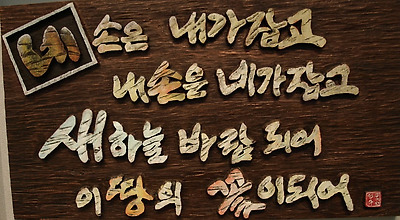 네 손은 내가잡고
내손을 네가잡고
새하늘 바람 되어
이땅의 꽃이되어